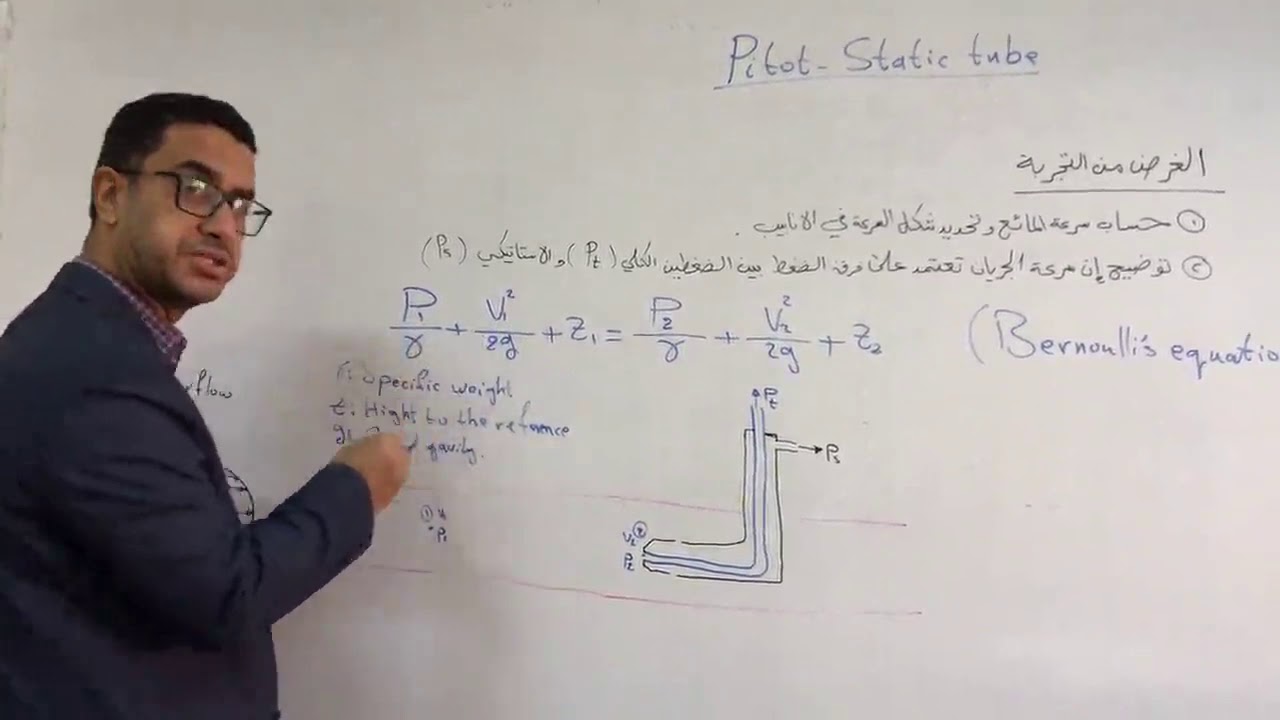 Pitot-Static tube
الغرض من التجربة
① حساب سرعة المائع وتحديد شكل السرعة في الانابيب .
② توضيح إن سرعة الجريان تعتمد على فرق الضغط بين الضغطين الكلي (Pt) والاستاتيكي (Ps)
P₁/γ + V₁²/2g + Z₁ = P₂/γ + V₂²/2g + Z₂
(Bernoulli's equatio
flow
Specific weight
Z: Hight to the refrence
gavity.
Pt
Ps
①
P₁
V₂ ②